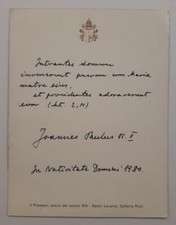 Intrantes domum
invenerunt puerum cum Maria
matre eius,
et procidentes adoraverunt
eum (Mt. 2,11)
Joannes Paulus PP. II
In Nativitate Domini 1980.